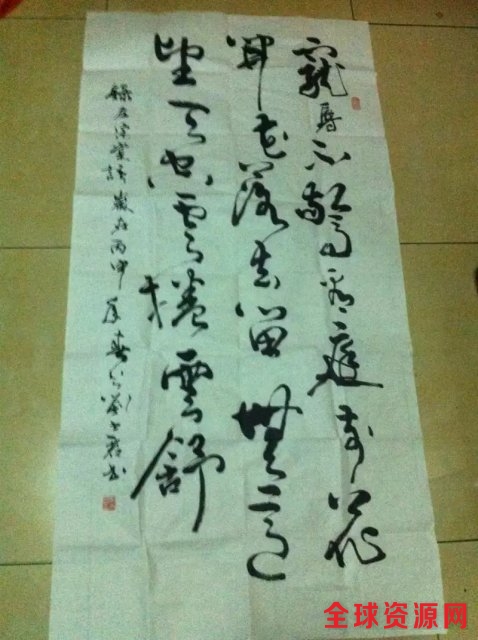 寵辱不驚看庭前花
開花落去留無意
望天空雲捲雲舒
歲在丙申年春
書
全球资源网